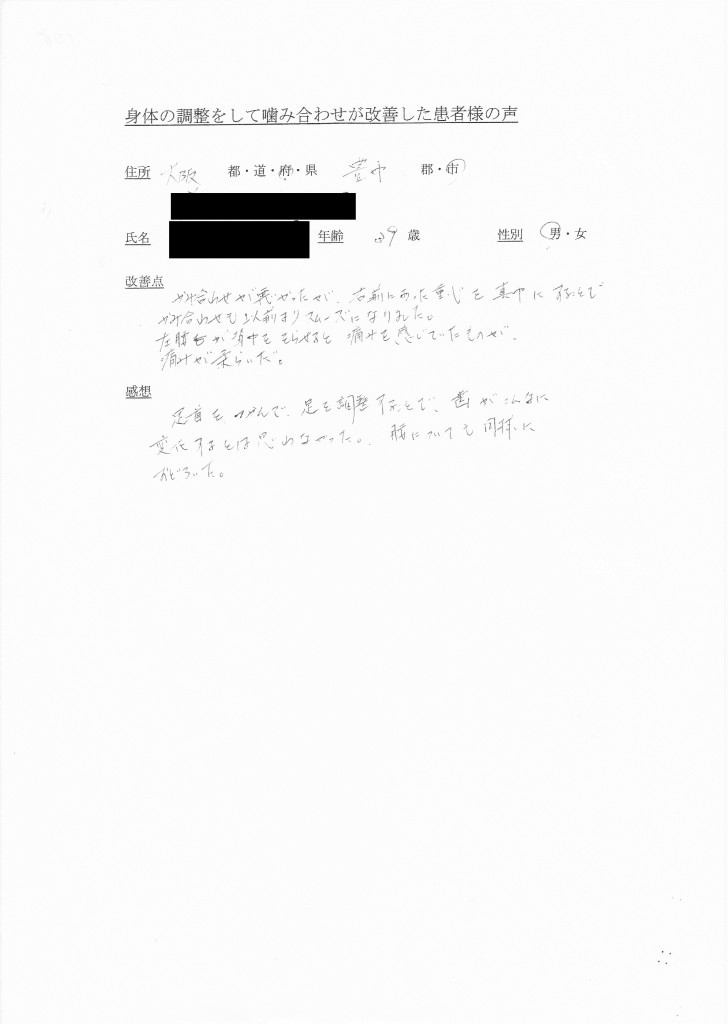 身体の調整をして噛み合わせが改善した患者様の声
住所 大阪 都・道・府・県 豊中 郡・市
氏名 年齢 39 歳 性別 男・女
改善点
かみ合わせが悪かったが、右前にあった重心を真中にすることで
かみ合わせも以前よりスムーズになりました。
左腕も背中をそらせると痛みを感じていたものが、
痛みが柔らいだ。
感想
足首をつかんで、足を調整することで、歯がこんなに
変化するとは思わなかった。腕についても同様に
おどろいた。